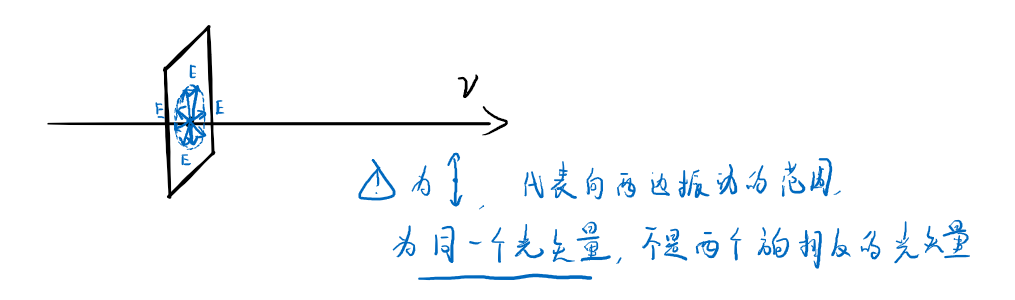 E
E E
E
v
⚠ 为↕, 代表向两边振动的范围,
为同一个光矢量, 不是两个方向相反的光矢量